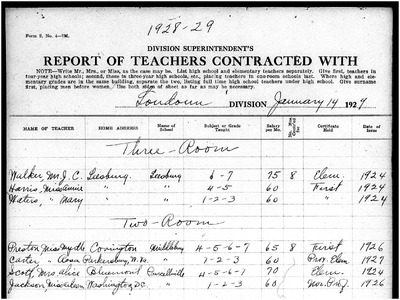 1928-29
Form S. No. 4—1M.
DIVISION SUPERINTENDENT'S
REPORT OF TEACHERS CONTRACTED WITH
NOTE—Write Mr., Mrs., or Miss, as the case may be. List high school and elementary teachers separately. Give first, teachers in
four-year high schools; second, those in three-year high schools, etc., placing teachers in one-room schools last. Where high and ele-
mentary grades are in the same building, separate the two, listing full time high school teachers under high school. Give surname
first, placing men before women. Use both sides of sheet as far as may be necessary.
Loudoun DIVISION January 14 1929
NAME OF TEACHER HOME ADDRESS Name of School Subject or Grade Taught Salary per Mo. No. Mos. Contracted for Certificate Held Date of Issue
Three-Room
Walker, Mrs J. C. Leesburg Leesburg 6-7 75 8 Elem. 1924
Harris, Miss Annie " " 4-5 60 First 1924
Waters, " Mary " " 1-2-3 60 " 1924
Two-Room
Preston, Miss Myrtle Covington Middleburg 4-5-6-7 65 8 First 1926
Carter, " Rosa Parkersburg, W. Va. " 1-2-3 60 Prov. Elem 1927
Scott, Mrs Alice Bluemont Purcellville 4-5-6-7 70 Elem. 1924
Jackson, Miss Washington, D.C. " 1-2-3 60 1926